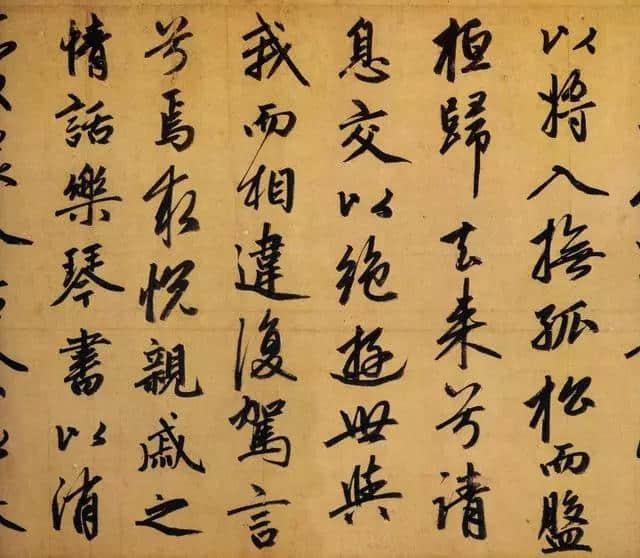 以將入撫孤松而盤
桓歸去来兮請
息交以絶遊世與
我而相違復駕言
兮焉求悦親戚之
情話樂琴書以消